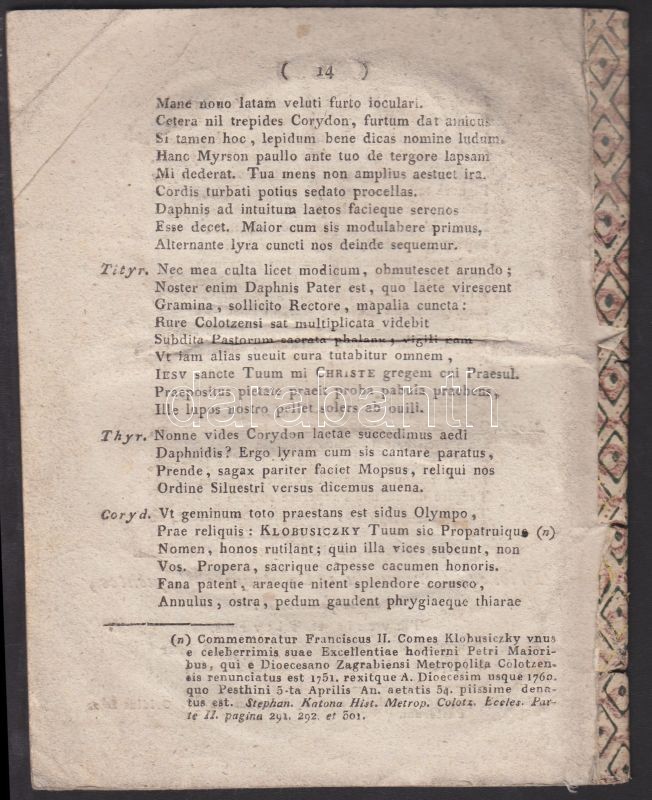 ( 14 )
Mane nouo latam veluti furto ioculari.
Cetera nil trepides Corydon, furtum dat amicus
Si tamen hoc, lepidum bene dicas nomine ludum.
Hanc Myrson paullo ante tuo de tergore lapsam
Mi dederat. Tua mens non amplius aestuet ira.
Cordis turbati potius sedato procellas.
Daphnis ad intuitum laetos facieque serenos
Esse decet. Maior cum sis modulabere primus,
Alternante lyra cuncti nos deinde sequemur.
Tityr. Nec mea culta licet modicum, obmutescet arundo;
Noster enim Daphnis Pater est, quo laete virescent
Gramina, sollicito Rectore, mapalia cuncta:
Rure Colotzensi sat multiplicata videbit
Subdita Pastorum sacrata phalanx; vigili eam
Vt iam alias sueuit cura tutabitur omnem,
IESV sancte Tuum mi CHRISTE gregem cui Praesul.
Praepositus pietate praeit proba pabula praebens,
Ille lupos nostro pellet solers ab ouili.
Thyr. Nonne vides Corydon laetae succedimus aedi
Daphnidis? Ergo lyram cum sis cantare paratus,
Prende, sagax pariter faciet Mopsus, reliqui nos
Ordine Siluestri versus dicemus auena.
Coryd. Vt geminum toto praestans est sidus Olympo,
Prae reliquis: KLOBUSICZKY Tuum sic Propatruique (n)
Nomen, honos rutilant; quin illa vices subeunt, non
Vos. Propera, sacrique capesse cacumen honoris.
Fana patent, araeque nitent splendore corusco,
Annulus, ostra, pedum gaudent phrygiaeque thiarae
(n) Commemoratur Franciscus II. Comes Klobusiczky vnus
e celeberrimis suae Excellentiae hodierni Petri Maiori-
bus, qui e Dioecesano Zagrabiensi Metropolita Colotzen-
sis renunciatus est 1751. rexitque A. Dioecesim usque 1760.
quo Pesthini 5-ta Aprilis An. aetatis 54. piissime dena-
tus est. Stephan. Katona Hist. Metrop. Colotz. Eccles. Par-
te II. pagina 291. 292. et 301.
darabanth